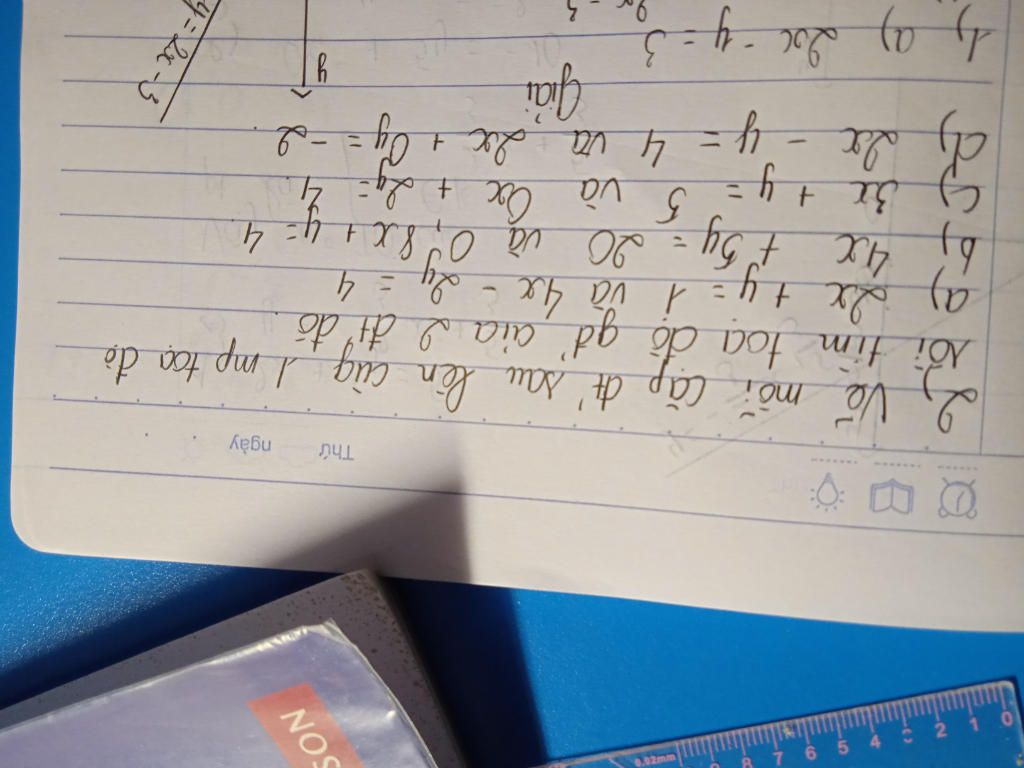 Thứ ngày
2, Vẽ mỗi cặp đt' sau lên cùg 1 mp toạ độ
rồi tìm toạ độ gđ' của 2 đt' đó
a) 2x + y = 1 và 4x - 2y = 4
b, 4x + 5y = 20 và 0,8x + y = 4
c) 3x + y = 5 và 6x + 2y = 4
d, 2x - y = 4 và 2x + 0y = -2
Giải
1, a) 2x - y = 3
y
y = 2x - 3
SON
0 1 2 4 5 6 7 8
0,02mm